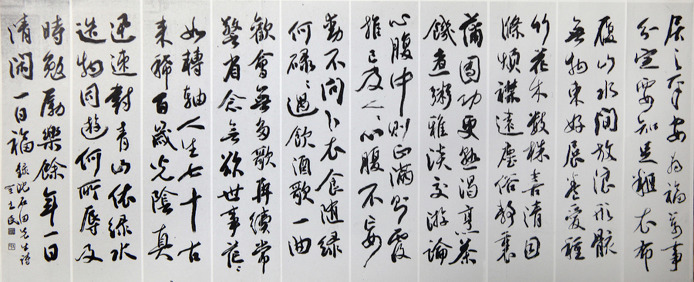 居之平安為福萬事
分定要知足粗衣布
履山水間放浪形骸
無物束好展卷愛種
竹花木數株喜清目
滌煩襟遠塵俗静裏
蒲團功更熟渴烹茶
饑煮粥雅淡交游論
心腹中則正滿則覆
推己及人心腹不妄
動不問卜衣食隨緣
何碌々遇飲酒歌一曲
歡會無多歌再續常
警省念無欲世事茫々
如轉軸人生七十古
來稀百歲光陰真
迅速對青山依綠水
造物同遊何所辱及
時勉勵樂餘年一日
清閒一日福
錄沈石田先生語